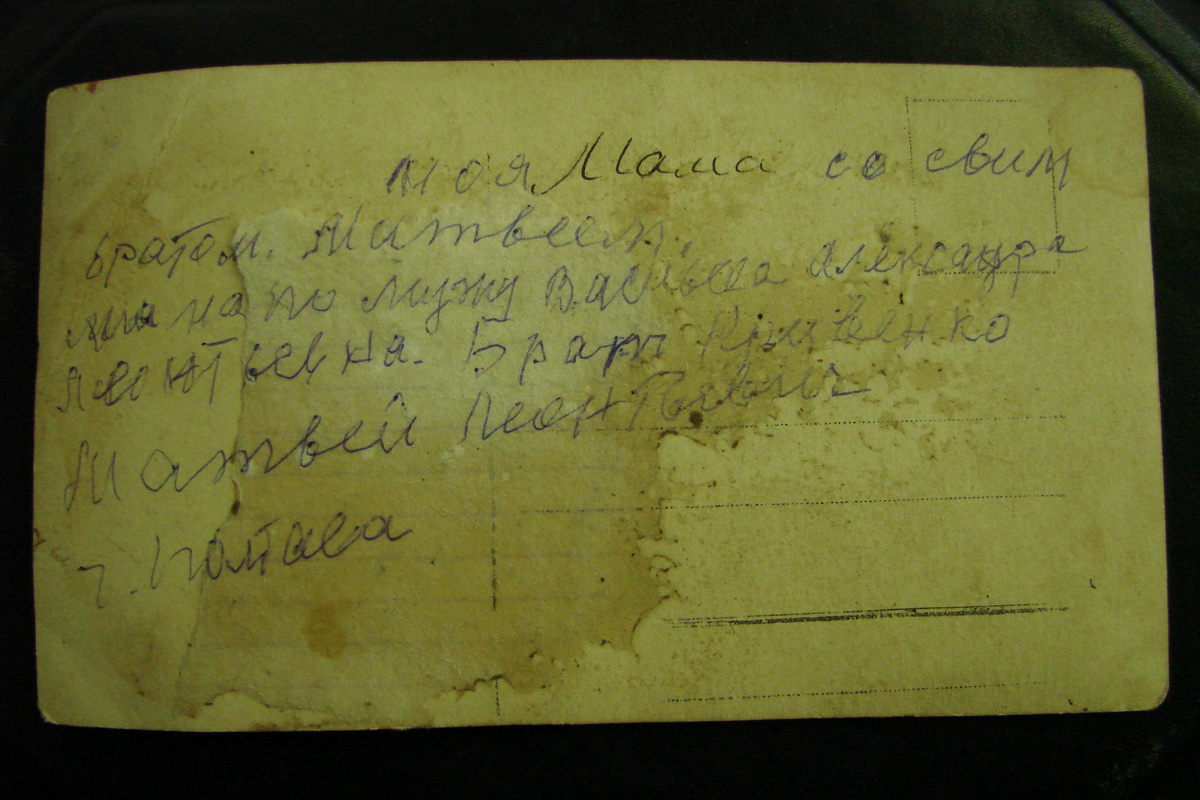 моя Мама со свим
братом. Матвеем,
на по мужу Васильева Александра
Леонтьевна. Брат Кривенко
Матвей Леонтьевич
г. Полтава